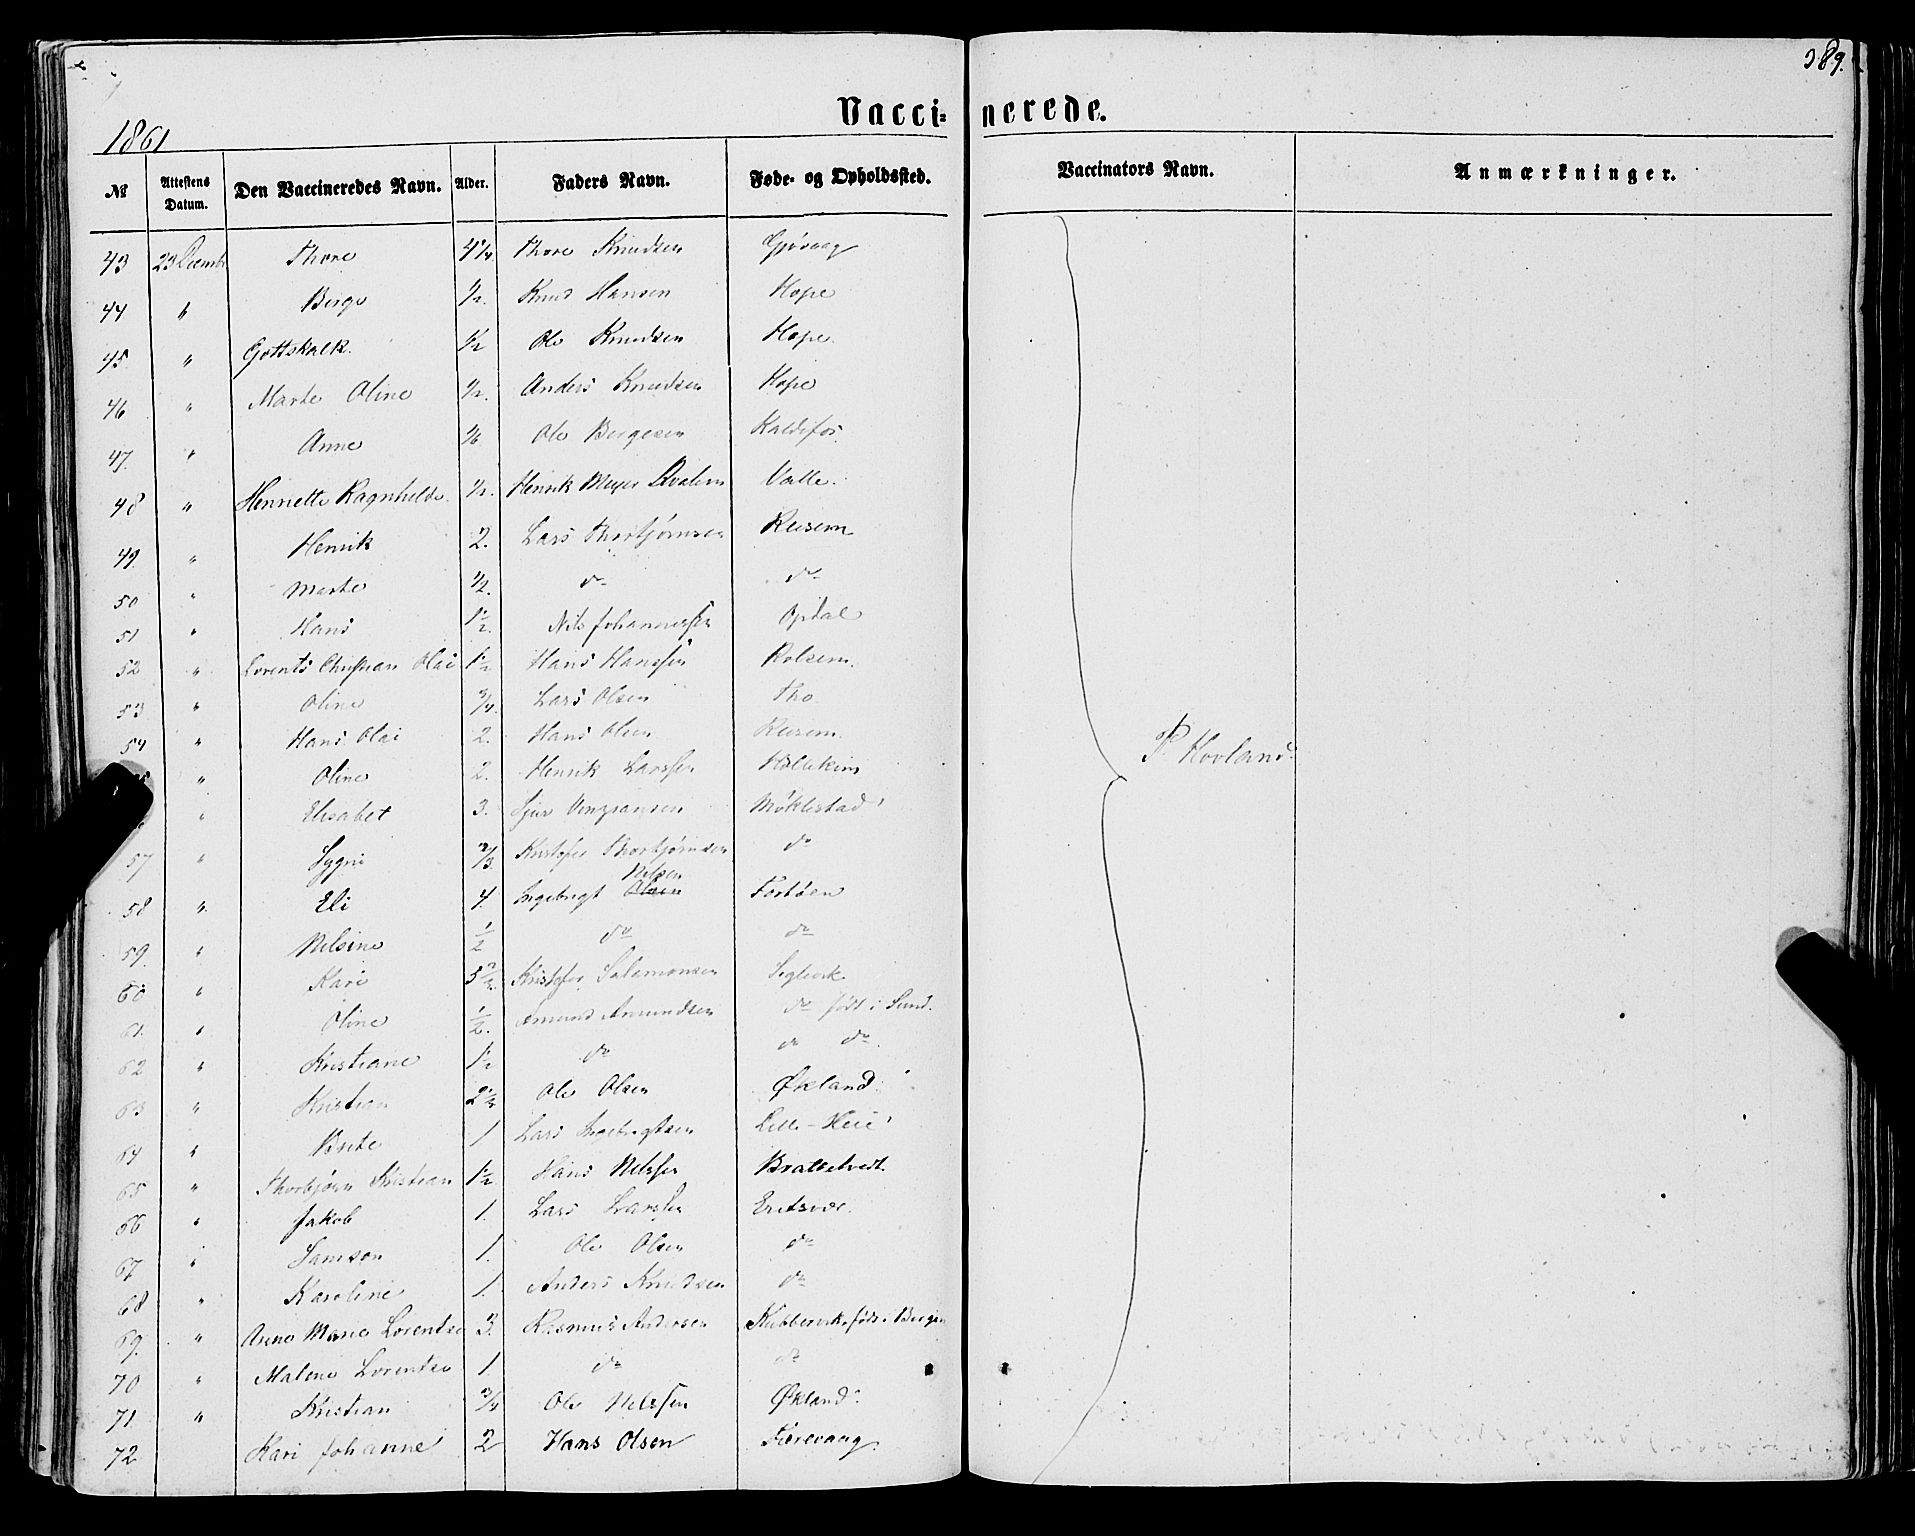 389.
Vacci- nerede.
1861
№ Attestens Datum. Den Vaccineredes Navn. Alder. Faders Navn. Føde- og Opholdssted. Vaccinators Navn. Anmærkninger.
43 23 Decembr Thore 4 1/4 Thore Knudsen Gjøvaag
44 " Berge 1/2. Knud Hansen Hope
45 " Gottskalk. 1/2 Ole Knudsen Hope
46 " Marte Oline 1/2. Anders Knudsen Hope
47. " Anne 1/6 Ole Bergesen Kaldefos
48 " Henriette Ragnhilde 1/2. Henrik Meyer Valle.
49. " Henrik 2. Lars Thorbjørnsen
50 " Marte 1/2. do do
51 " Hans 1 1/2. Nils Johannessen Opdal
52 " Lorents Christian Olai 1 1/2 Hans Hanssen
53 " Oline 3/4. Lars Olsen Tho
54 " Hans Olai 2. Hans Olsen
" Oline 2. Henrik Larssen
" Elisabet 3. Sjur Møklestad
57 " Sygni 2/3. Kristofer Thorbjørnsen do
58 " Eli 4. Ingebrigt Olsen Nelsen
59. " Nelsine 1/2 do do
60 " Kari 5 1/2. Kristofer Salamonsen
61. " Oline 1/2. Amund Amundsen do født i Sund.
62 " Kristiane 1 1/2 do do do.
63 " Kristian 2 1/2 Ole Olsen Økland
64 " Brite 1 Lars Ingebrigtsen Lille-Heie
65 " Thorbjørn Kristian 1 1/2. Hans Nelssen Bratselvedt.
66 " Jakob 1. Lars Larssen
67 " Samson 1. Ole Olsen do
68 " Karoline 1. Anders Knudsen do
69. " Anne Marie Lorentse 3. Rasmus Andersen født i Bergen
70 " Malene Lorentse 1 do do
71 " Kristian 3/4 Ole Nelssen Økland.
72 Kari Johanne 2 Hans Olsen Færevaag.
P. Hovland.